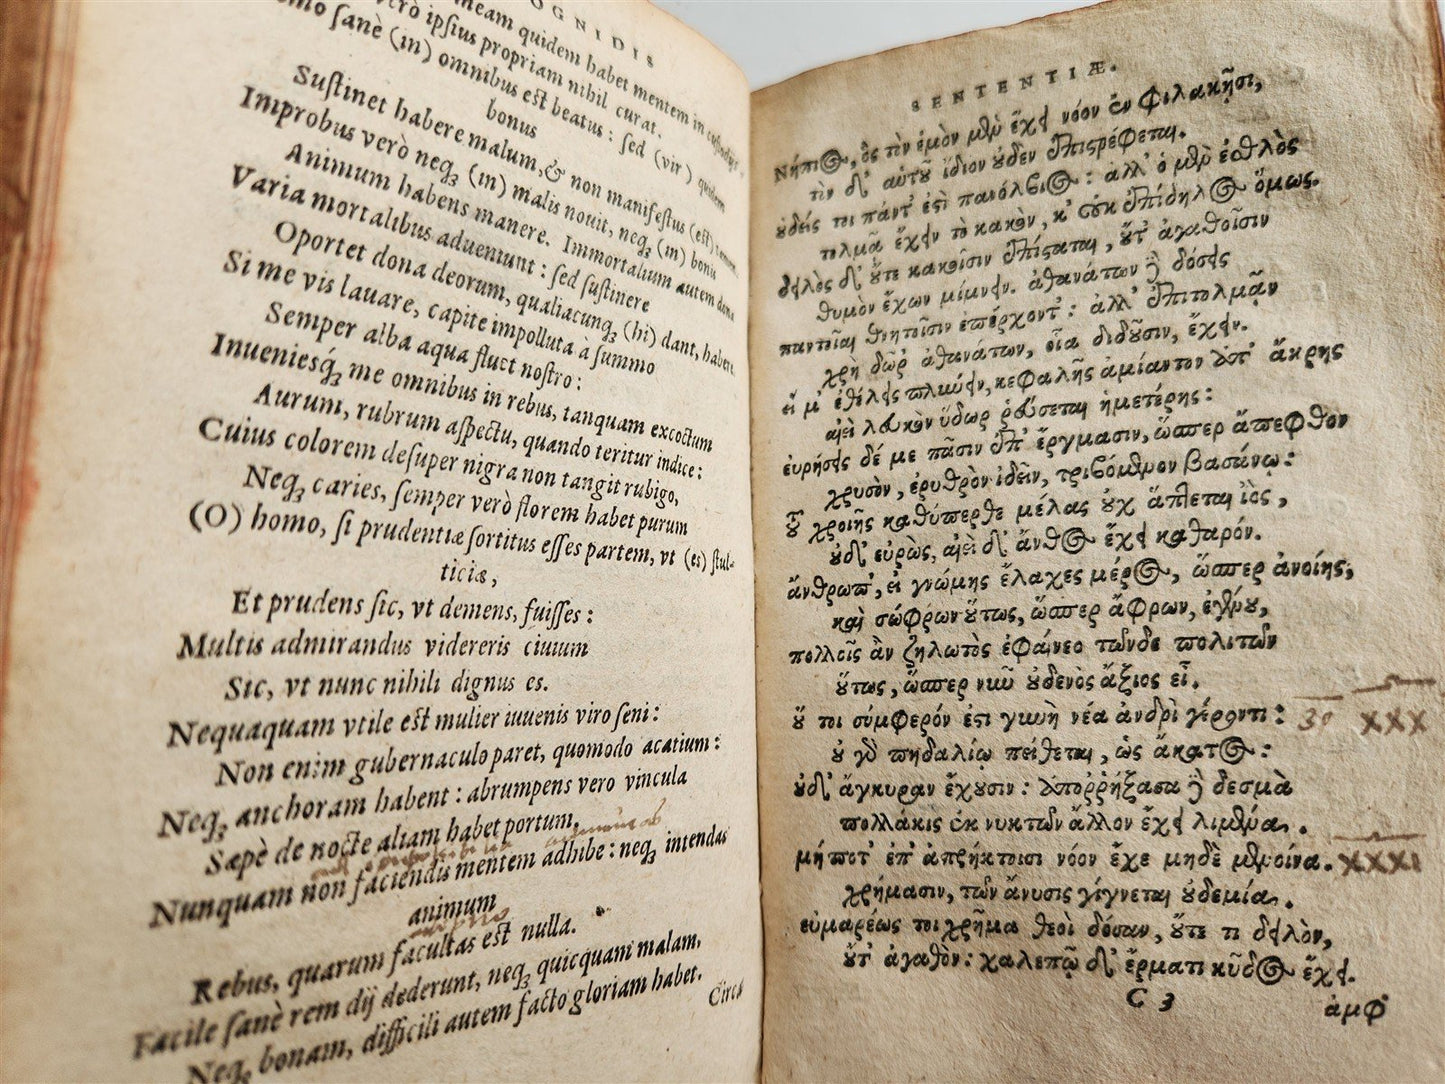 OGNIDIS
meam quidem habet mentem in
verò ipsius propriam nihil curat.
omo sanè (in) omnibus est beatus: sed (vir) quidem
bonus
Sustinet habere malum, & non manifestus (est) tamen.
Improbus verò neq; (in) malis nouit, neq; (in) bonis
Animum habens manere. Immortalium autem dona
Varia mortalibus adueniunt: sed sustinere
Oportet dona deorum, qualiacunq; (hi) dant, habere.
Si me vis lauare, capite impolluta à summo
Semper alba aqua fluet nostro:
Inueniesq́; me omnibus in rebus, tanquam excoctum
Aurum, rubrum aspectu, quando teritur indice:
Cuius colorem desuper nigra non tangit rubigo,
Neq; caries, semper verò florem habet purum
(O) homo, si prudentiæ sortitus esses partem, vt (es) stul-
ticiæ,
Et prudens sic, vt demens, fuisses:
Multis admirandus videreris ciuium
Sic, vt nunc nihili dignus es.
Nequaquam vtile est mulier iuuenis viro seni:
Non enim gubernaculo paret, quomodo acatium:
Neq; anchoram habent: abrumpens vero vincula
Sæpè de nocte aliam habet portum.
Nunquam non faciendis mentem adhibe: neq; intendas
animum
Rebus, quarum facultas est nulla.
Facile sanè rem dij dederunt, neq; quicquam malam,
Neq; bonam, difficili autem facto gloriam habet.
Circa
SENTENTIÆ.
Νήπιος, ὃς τὸν ἐμὸν μὲν ἔχει νόον ἐν φιλακῇσι,
τὸν δ' αὐτοῦ ἴδιον οὐδὲν ἐπιστρέφεται.
οὐδείς τοι πάντ' ἐστὶ πανόλβιος: ἀλλ' ὁ μὲν ἐσθλὸς
τολμᾶ ἔχειν τὸ κακὸν, κ' οὐκ ἐπίδηλος ὅμως.
δειλὸς δ' οὔτε κακοῖσιν ἐπίσταται, οὔτ' ἀγαθοῖσιν
θυμὸν ἔχων μίμνειν. ἀθανάτων δὲ δόσεις
παντοῖαι θνητοῖσιν ἐπέρχοντ': ἀλλ' ἐπιτολμᾶν
χρὴ δῶρ' ἀθανάτων, οἷα διδοῦσιν, ἔχειν.
εἴ μ' ἐθέλεις πλύνειν, κεφαλῆς ἀμίαντον ἀπ' ἄκρης
αἰεὶ λευκὸν ὕδωρ ῥεύσεται ἡμετέρης:
εὑρήσεις δέ με πᾶσιν ἐπ' ἔργμασιν, ὥσπερ ἄπεφθον
χρυσὸν, ἐρυθρὸν ἰδεῖν, τριβόμενον βασάνῳ:
οὗ χροιῆς καθύπερθε μέλας οὐχ ἅπτεται ἰὸς,
οὐδ' εὐρὼς, αἰεὶ δ' ἄνθος ἔχει καθαρόν.
ἄνθρωπ', εἰ γνώμης ἔλαχες μέρος, ὥσπερ ἀνοίης,
καὶ σώφρων οὕτως, ὥσπερ ἄφρων, ἐγένου,
πολλοῖς ἂν ζηλωτὸς ἐφαίνεο τῶνδε πολιτῶν
οὕτως, ὥσπερ νῦν οὐδενὸς ἄξιος εἶ.
οὔ τοι σύμφερόν ἐστι γυνὴ νέα ἀνδρὶ γέροντι: 30 XXX
οὐ γὰρ πηδαλίῳ πείθεται, ὡς ἄκατος:
οὐδ' ἄγκυραν ἔχουσιν: ἀποῤῥήξασα δὲ δεσμὰ
πολλάκις ἐκ νυκτῶν ἄλλον ἔχει λιμένα.
μήποτ' ἐπ' ἀπρήκτοισι νόον ἔχε μηδὲ μενοίνα. XXXI
χρήμασιν, τῶν ἄνυσις γίγνεται οὐδεμία.
εὐμαρέως τοι χρῆμα θεοὶ δόσαν, οὔτε τι δειλὸν,
οὔτ' ἀγαθὸν: χαλεπῷ δ' ἔρματι κῦδος ἔχει.
C 3
ἀμφ'